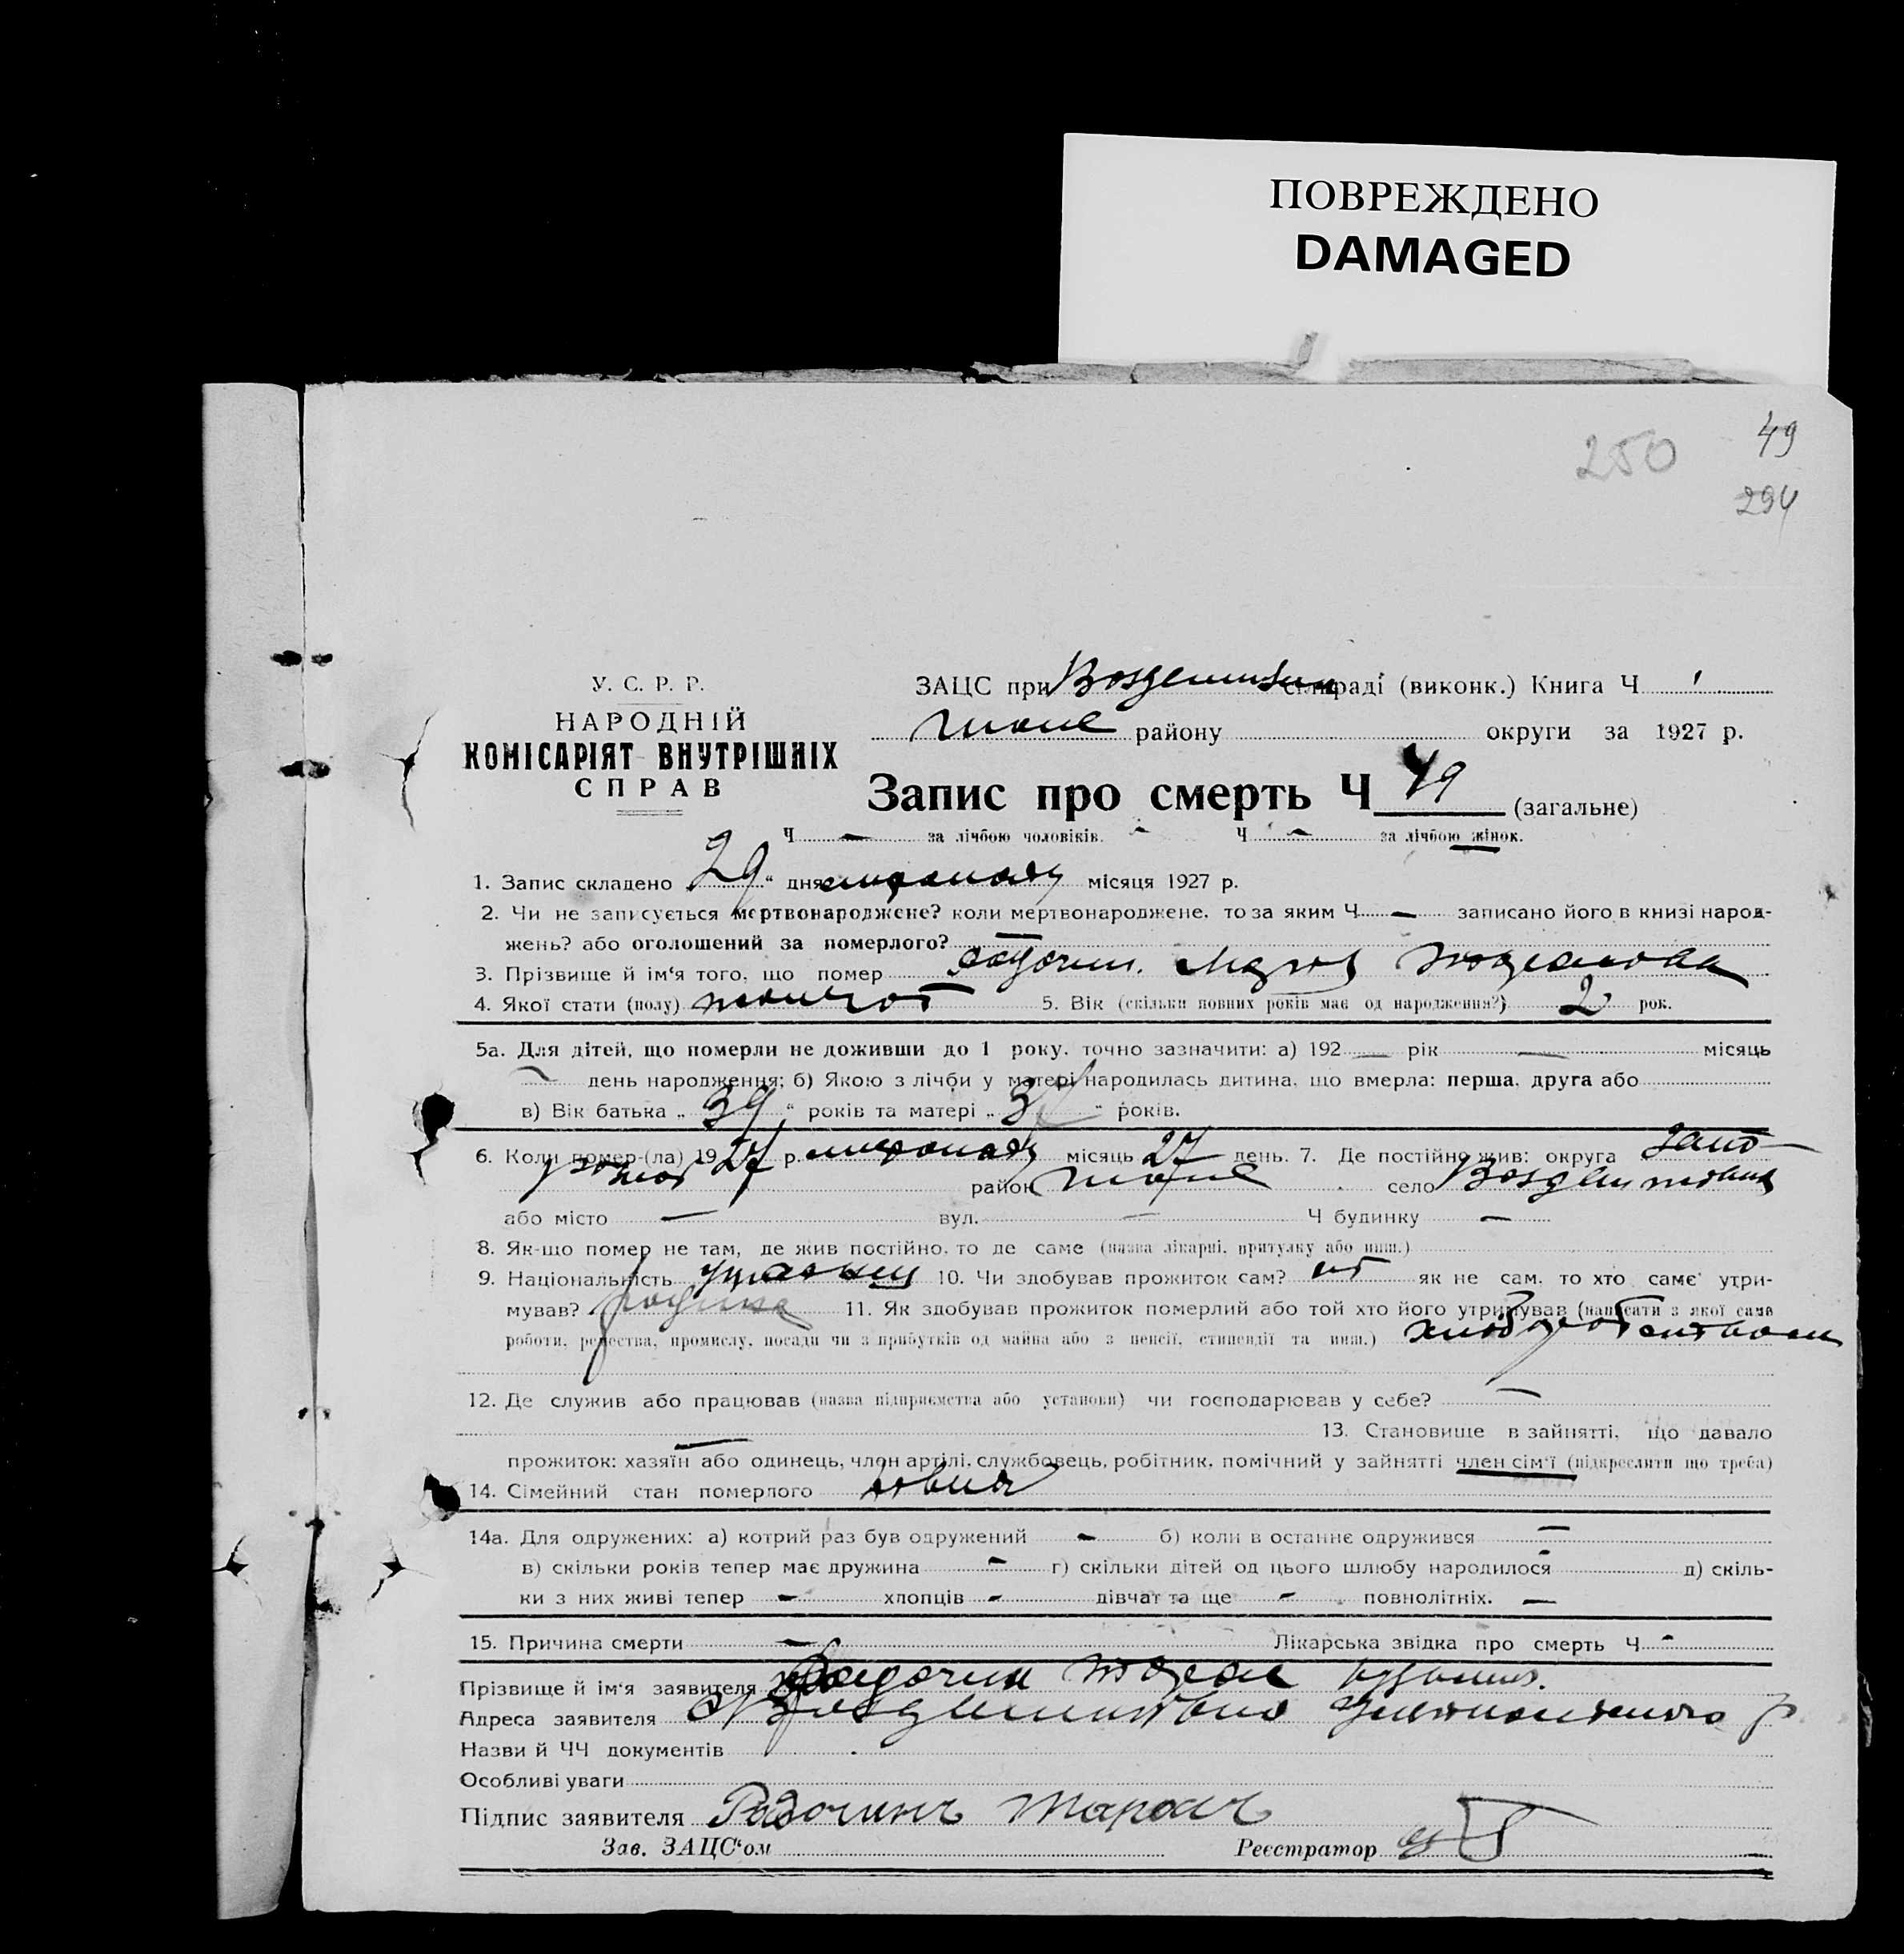 ПОВРЕЖДЕНО
DAMAGED
250
49
294
У. С. Р. Р.
НАРОДНІЙ
КОМІСАРІЯТ ВНУТРІШНІХ
СПРАВ
ЗАЦС при сільраді (виконк.) Книга Ч
району округи за 1927 р.
Запис про смерть Ч 49 (загальне)
Ч — за лічбою чоловіків. Ч — за лічбою жінок.
1. Запис складено 29 “ дня листопаду місяця 1927 р.
2. Чи не записується мертвонароджене? коли мертвонароджене, то за яким Ч — записано його в книзі народ-
жень? або оголошений за померлого? —
3. Прізвище й ім‘я того, що помер
4. Якої стати (полу) 5. Вік (скільки повних років має од народження?) 2 рок.
5а. Для дітей, що померли не доживши до 1 року, точно зазначити: а) 192 — рік — місяць
— день народження; б) Якою з лічби у матері народилась дитина, що вмерла: перша, друга або
в) Вік батька „ 39 “ років та матері „ 37 “ років.
6. Коли помер-(ла) 1927 р. листопаду місяць 27 день. 7. Де постійно жив: округа
район село
або місто — вул. — Ч будинку —
8. Як-що помер не там, де жив постійно, то де саме (назва лікарні, притулку або инш.)
9. Національність 10. Чи здобував прожиток сам? ні як не сам, то хто саме утри-
мував? родина 11. Як здобував прожиток померлий або той хто його утримував (написати з якої саме
роботи, ремества, промислу, посади чи з прибутків од майна або з пенсії, стипендії та инш.)
12. Де служив або працював (назва підприємства або установи) чи господарював у себе? —
— 13. Становище в зайнятті, що давало
прожиток: хазяїн або одинець, член артілі, службовець, робітник, помічний у зайнятті член сім‘ї (підкреслити що треба)
14. Сімейний стан померлого
14а. Для одружених: а) котрий раз був одружений — б) коли в останнє одружився —
в) скільки років тепер має дружина — г) скільки дітей од цього шлюбу народилося — д) скіль-
ки з них живі тепер — хлопців — дівчат та ще — повнолітніх. —
15. Причина смерти — Лікарська звідка про смерть Ч -
Прізвище й ім‘я заявителя
Адреса заявителя
Назви й ЧЧ документів
Особливі уваги
Підпис заявителя Тарасъ
Зав. ЗАЦС‘ом Реєстратор